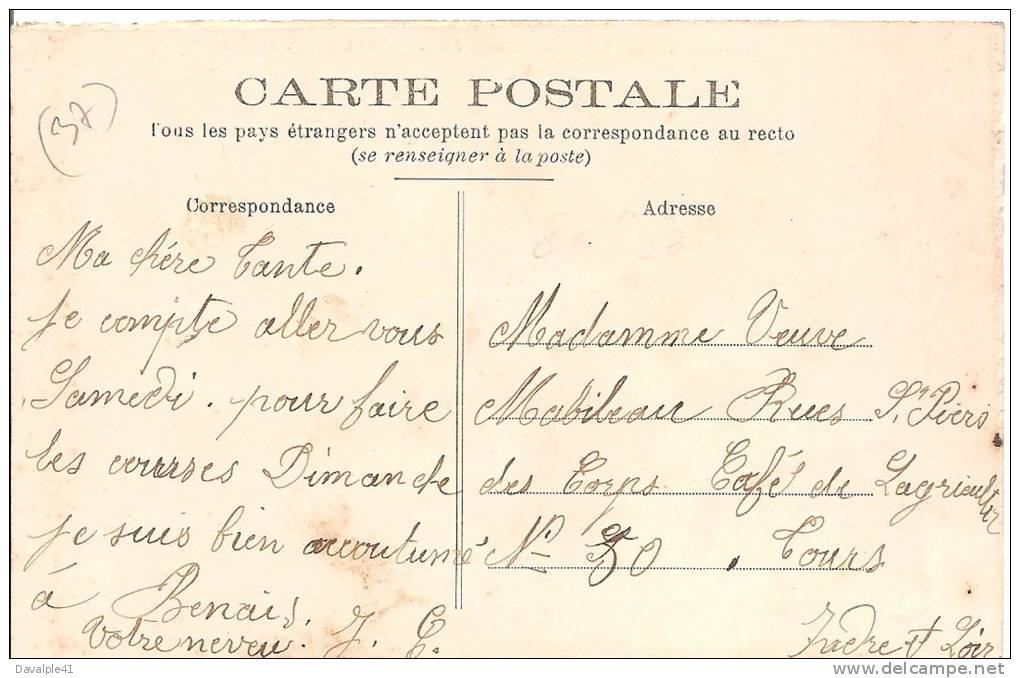 (37)
CARTE POSTALE
Tous les pays étrangers n'acceptent pas la correspondance au recto
(se renseigner à la poste)
Correspondance
Ma chére Tante.
je compte aller vous
Samedi. pour faire
les courrses Dimanche
je suis bien accoutumé
à Benais.
Votre neveu. J. C.
Adresse
Madamme Veuve
Mabileau Rues St Piers
des Corps Café de Lagriculteur
No 50. Tours
Indre et Loir
Davalple41
delcampe.net